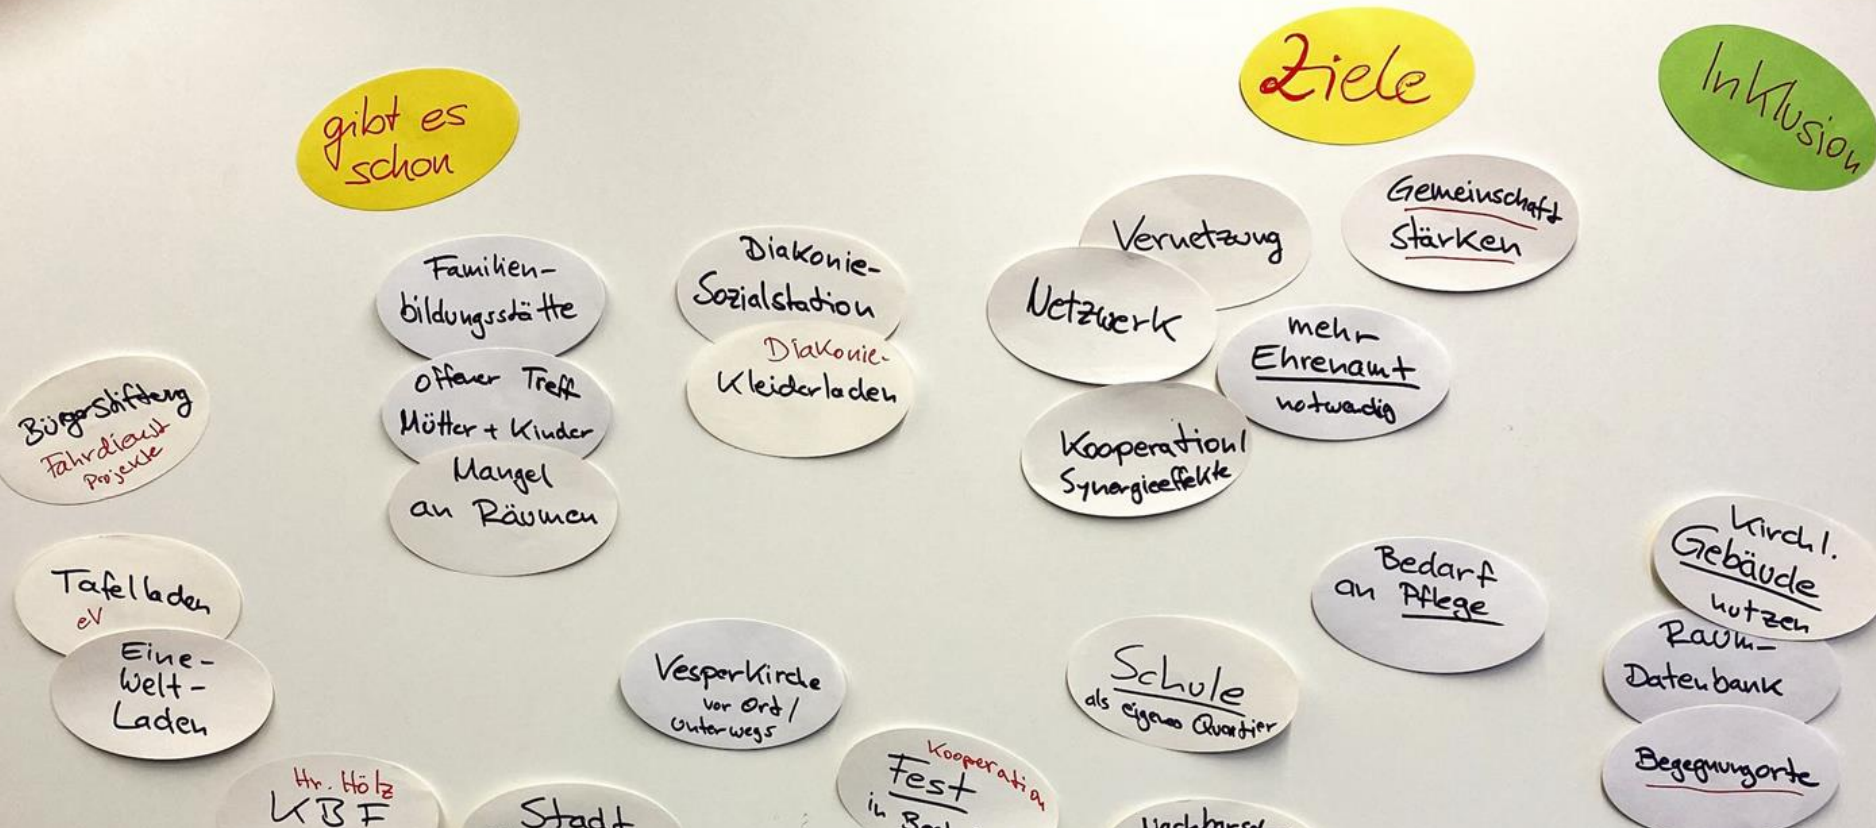 gibt es
schon
Ziele
Inklusion
Familien-
bildungsstätte
offener Treff
Mütter + Kinder
Mangel
an Räumen
Diakonie-
Sozialstation
Diakonie-
Kleiderladen
Vernetzung
Netzwerk
Gemeinschaft
stärken
mehr
Ehrenamt
notwendig
Kooperation/
Synergieeffekte
Bürgerstiftung
Fahrdienst
Projekte
Tafelladen
eV
Eine-
Welt-
Laden
Vesperkirche
vor Ort/
unterwegs
Schule
als eigenes Quartier
Bedarf
an Pflege
Kirchl.
Gebäude
nutzen
Raum-
Datenbank
Begegnungorte
Hr. Hölz
KBF
Stadt
Kooperation
Fest
in